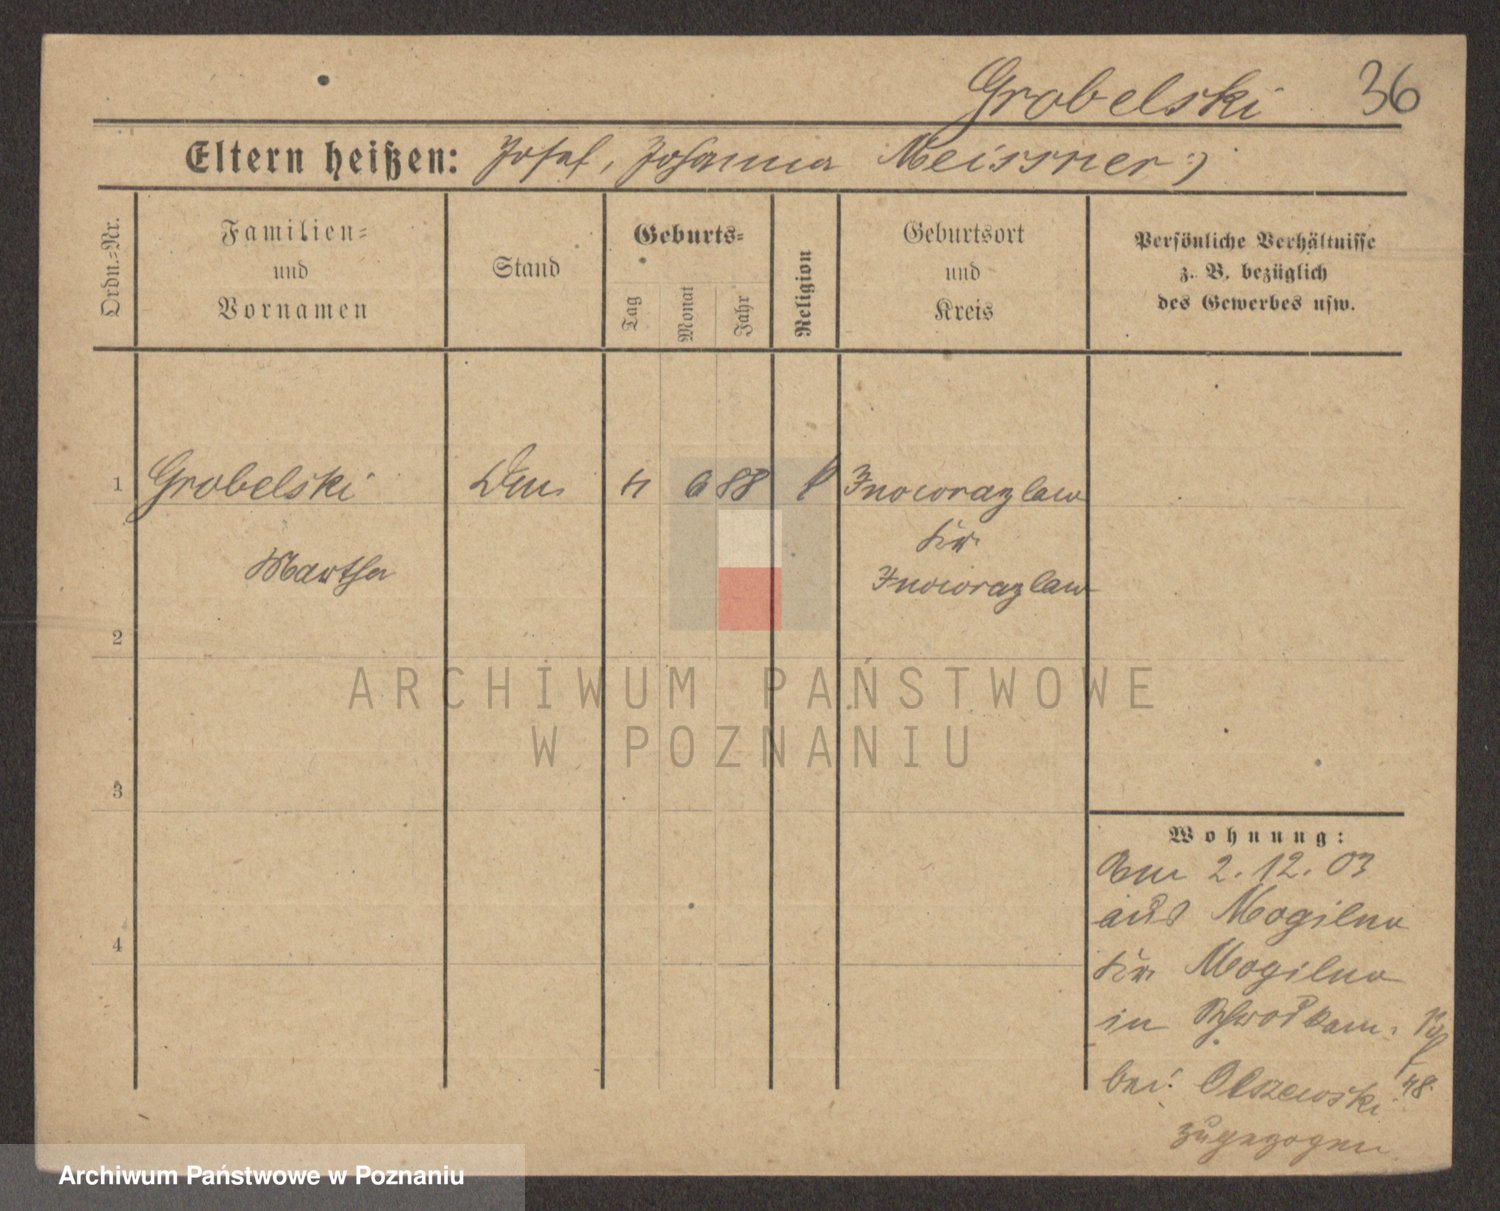 Grobelski 36
Eltern heißen: Josef, Johanna Meissner :)
Ordn.-Nr.
Familien-
und
Vornamen
Stand
Geburts-
Tag
Monat
Jahr
Religion
Geburtsort
und
Kreis
Persönliche Verhältnisse
z. B. bezüglich
des Gewerbes usw.
1 Grobelski 6 88 Inowrazlaw
Kr.
Martha Inowrazlaw
2
3
4
Wohnung:
Am 2.12.03
aus Mogilno
Kr. Mogilno
in
bei Olszewski 48
zugezogen
ARCHIWUM PAŃSTWOWE
W POZNANIU
Archiwum Państwowe w Poznaniu